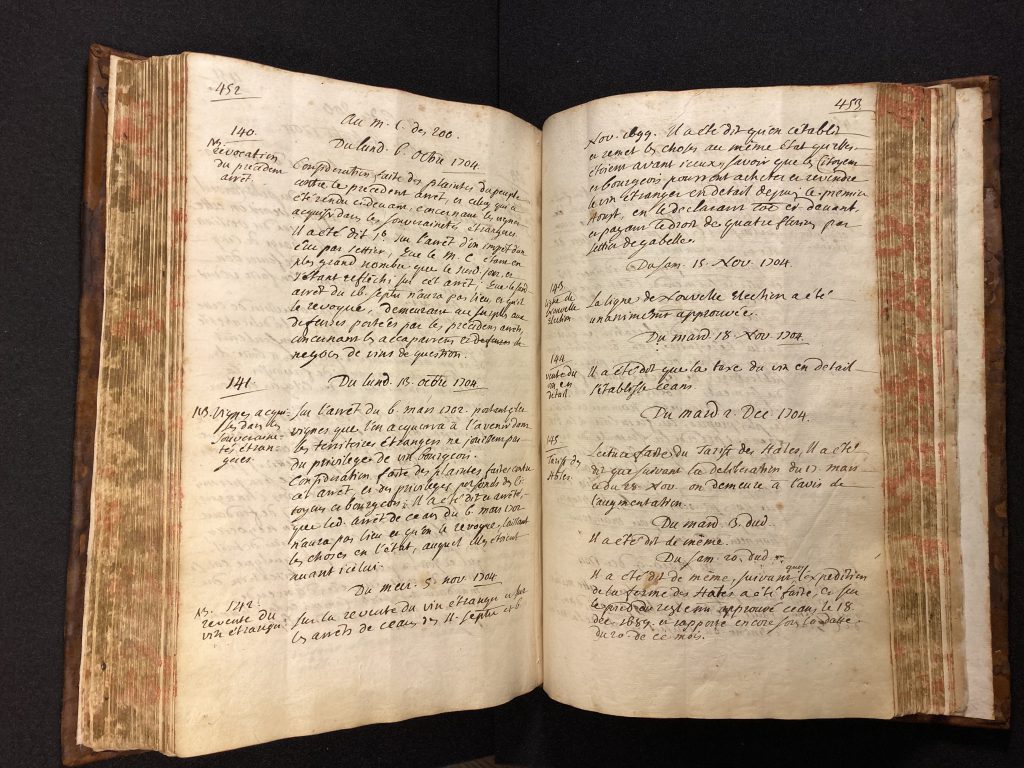 452
Au m. C. des 200.
Du lund. 6. octbre 1704.
140.
N3. révocation
du précédent
arrêt.
Considération faite des plaintes du peuple
contre le précédent arrêt, et celuy qui a
été rendu cidevant, concernant les vignes
acquises dans les souverainetés étrangeres
Il a été dit 1º. sur l'arrêt d'un impôt d'un
écu par settier, que le M. C. étant en
plus grand nombre que le jour, et
s'étant refléchi sur cet arrêt, que led.
arrêt du 26. septre n'aura pas lieu et qu'on
le revoque, demeurant au surplus aux
defenses portées par les précédens arrêts,
concernant les accapareurs et
negoces de vins de question.
Du lund. 13. octbre 1704.
141.
N3. Vignes acqui-
ses dans les
souverain-
tés étran-
geres.
Sur l'arrêt du 6. mars 1702. portant q les
vignes que l'on acquerra à l'avenir dans
les territoires étrangers ne jouïront pas
du privilege de vin bourgeois.
Considération faite des plaintes faites contre
cet arrêt, et des privileges des Ci-
toyens et bourgeois; Il a été dit et arrêté,
que led. arrêt de ceans du 6. mars 1702
n'aura pas lieu et qu'on le revoque, laissant
les choses en l'état, auquel elles étoient
avant icelui.
Du mer. 5. nov. 1704.
N3. 142.
revente du
vin étranger
Sur la revente du vin étranger et sur
les arrêts de ceans des 11. septre et 6
453
Nov. 1699. Il a été dit qu'on établit
et remet les choses au même état qu'elles
étoient avant iceux, savoir que les Citoyens
et bourgeois pourront acheter et revendre
le vin étranger en détail depuis le premier
Aoust, en le declarant cy devant,
et payant le droit de quatre florins par
settier de gabelle.
Du Sam. 15. Nov. 1704.
143.
ligne de
nouvelle
Election
La ligne de Nouvelle Election a été
unanimemt approuvée.
Du mard. 18. Nov. 1704.
144.
vente du
vin en
detail.
Il a été dit que la taxe du vin en détail
s'établisse ceans.
Du mard 2. Dec. 1704.
145
Tariffe des
Hales.
Lecture faite du Tariffe des Hales, Il a été
dit que suivant la deliberation du 17. mars
et du 28. Nov. on demeure à l'avis de
l'augmentation.
Du mard. 3. dud.
Il a été dit de même.
Du Sam. 20. dud.
Il a été dit de même, suivant quoy l'expedition
de la ferme des Hales a été faite, et sur
le pied du reglemt approuvé ceans le 18.
déc. 1689. et rapporté encore sous la datte
du 20. de ce mois.